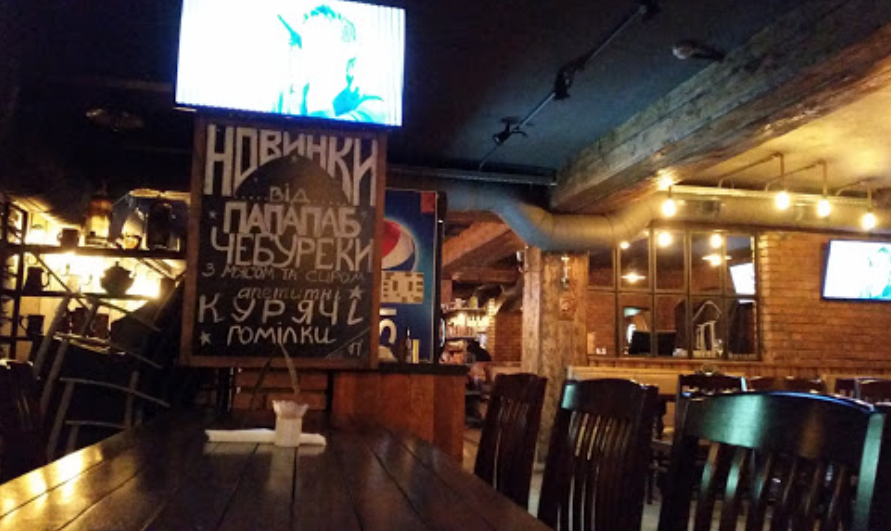 НОВИНКИ
ВІД
ПАПАПАБ
ЧЕБУРЕКИ
З МЯСОМ ТА СИРОМ
апетитні
КУРЯЧІ
ГОМІЛКИ